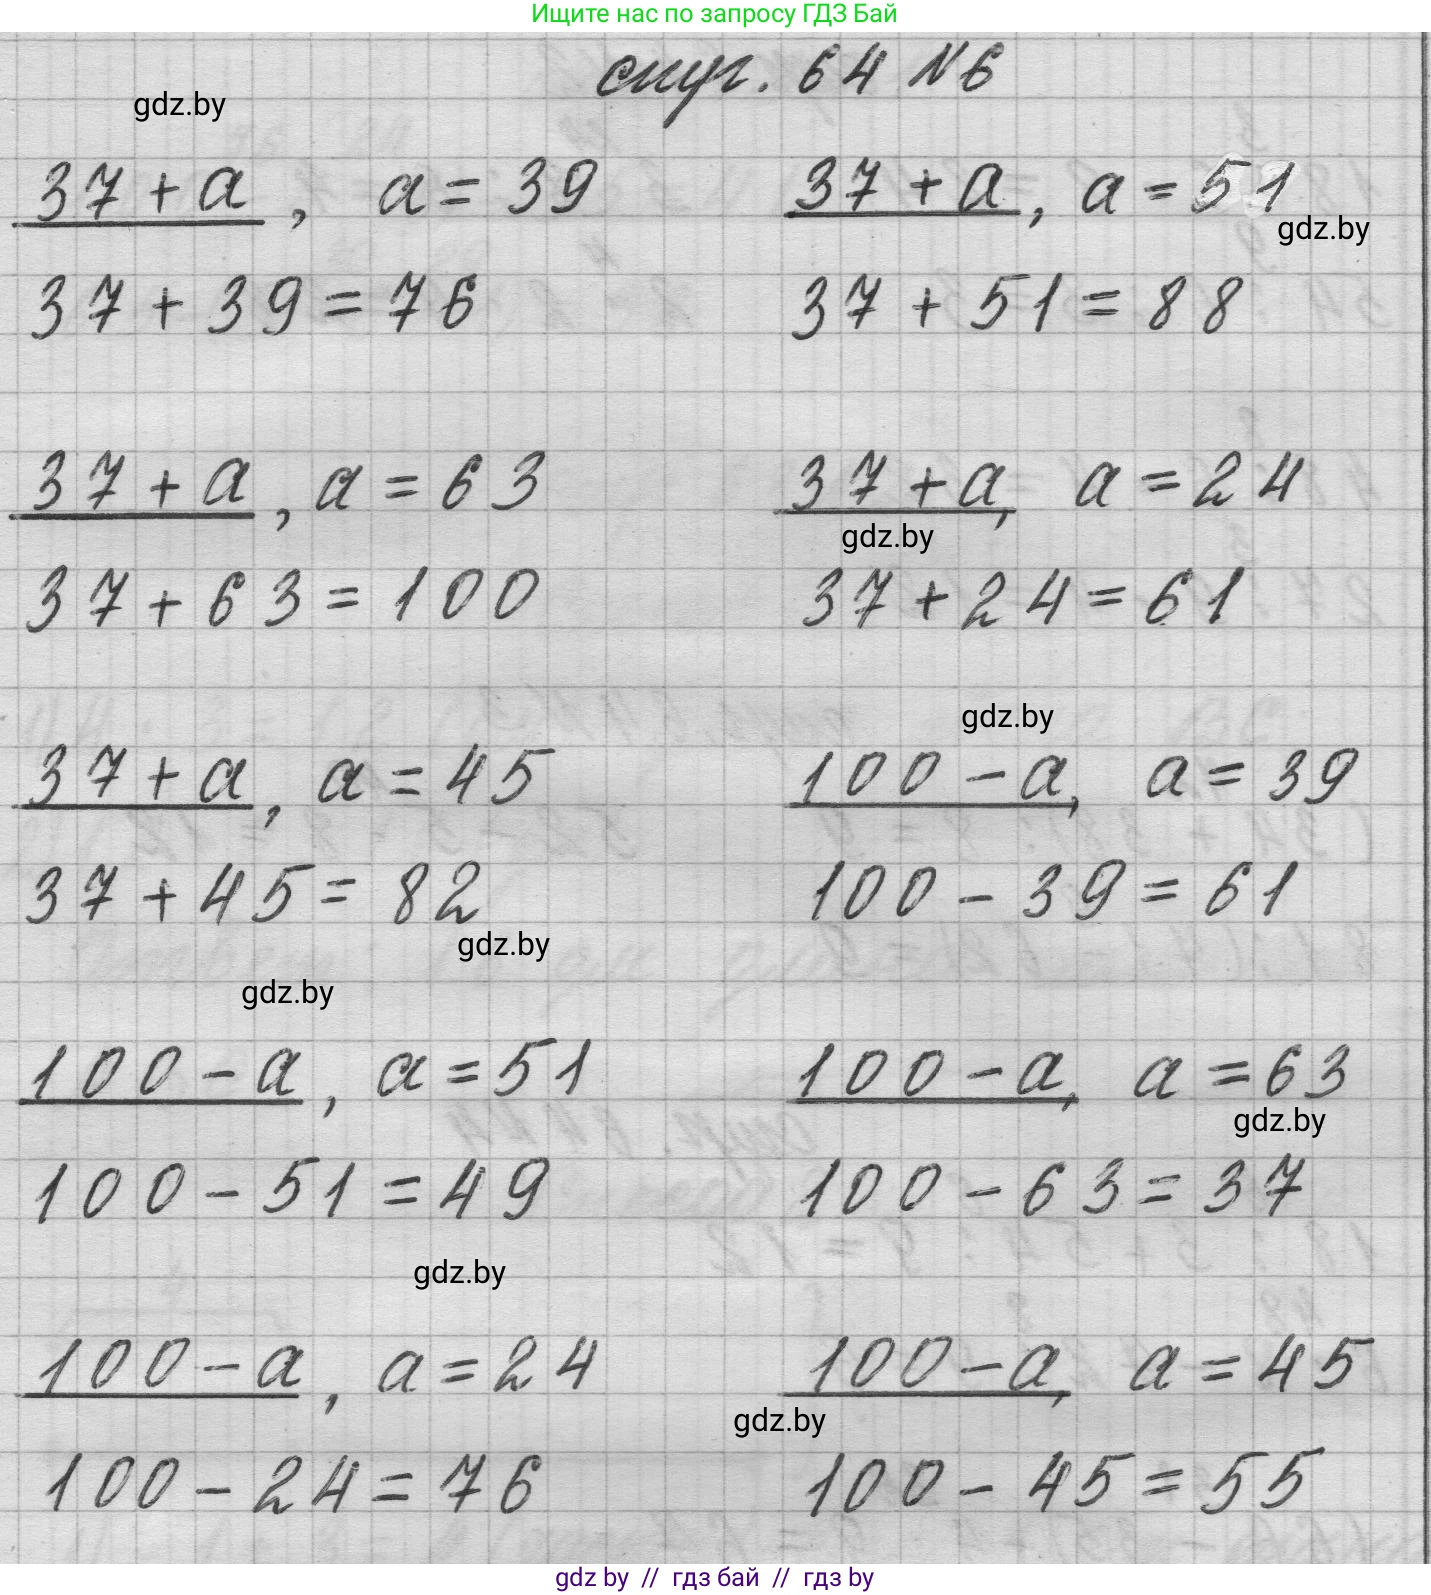 Ищите нас по запросу ГДЗ Бай
gdz.by
37 + a, a = 39
37 + 39 = 76
37 + a, a = 51
gdz.by
37 + 51 = 88
37 + a, a = 63
37 + 63 = 100
37 + a, a = 24
gdz.by
37 + 24 = 61
37 + a, a = 45
37 + 45 = 82
gdz.by
gdz.by
100 - a, a = 39
100 - 39 = 61
gdz.by
100 - a, a = 51
100 - 51 = 49
100 - a, a = 63
gdz.by
100 - 63 = 37
gdz.by
100 - a, a = 24
100 - 24 = 76
100 - a, a = 45
gdz.by
100 - 45 = 55
gdz by // гдз бай // гдз by